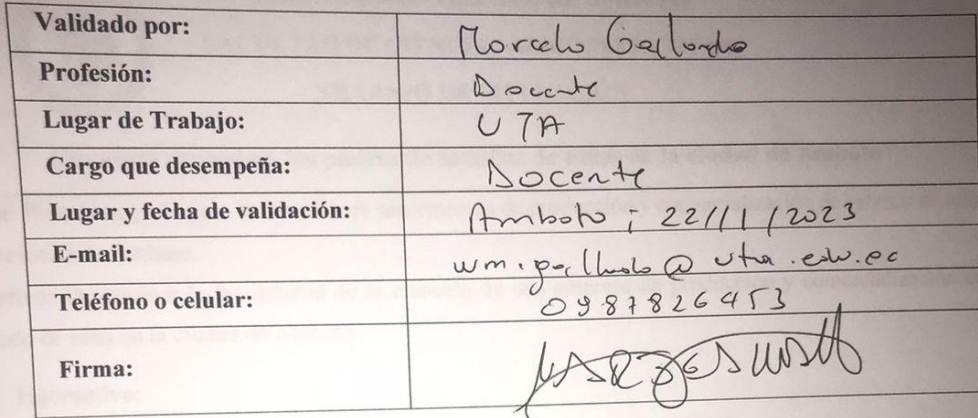 Validado por: Marcelo Gallardo
Profesión: Docente
Lugar de Trabajo: UTA
Cargo que desempeña: Docente
Lugar y fecha de validación: Ambato, 22/11/2023
E-mail: wm.gallardo@uta.edu.ec
Teléfono o celular: 0987826453
Firma: